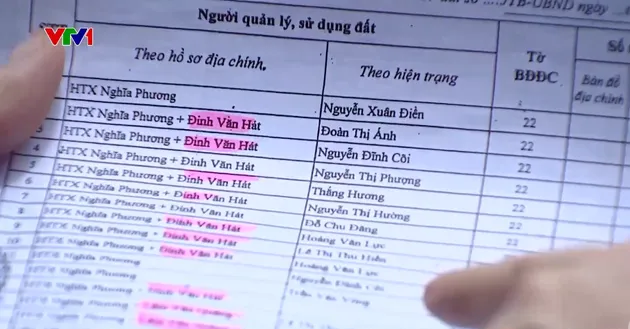 VTV1
...TB-UBND ngày
Người quản lý, sử dụng đất
Theo hồ sơ địa chính.
Theo hiện trạng
Tờ BĐĐC
Số
Bản đồ địa chính
HTX Nghĩa Phương
Nguyễn Xuân Điền
22
HTX Nghĩa Phương + Đinh Văn Hát
Đoàn Thị Ánh
22
3
HTX Nghĩa Phương + Đinh Văn Hát
Nguyễn Đĩnh Côi
22
4
HTX Nghĩa Phương + Đinh Văn Hát
Nguyễn Thị Phượng
22
5
HTX Nghĩa Phương + Đinh Văn Hát
Thắng Hương
22
6
HTX Nghĩa Phương + Đinh Văn Hát
Nguyễn Thị Hường
22
7
HTX Nghĩa Phương + Đinh Văn Hát
Đỗ Chu Đăng
22
8
HTX Nghĩa Phương + Đinh Văn Hát
Hoàng Văn Lực
22
9
HTX Nghĩa Phương + Đinh Văn Hát
Lê Thị Thu Hiền
10
HTX Nghĩa Phương
Hoàng Văn Lực
HTX Nghĩa Phương + Đinh Văn Hát
Nguyễn Đình
HTX Nghĩa Phương